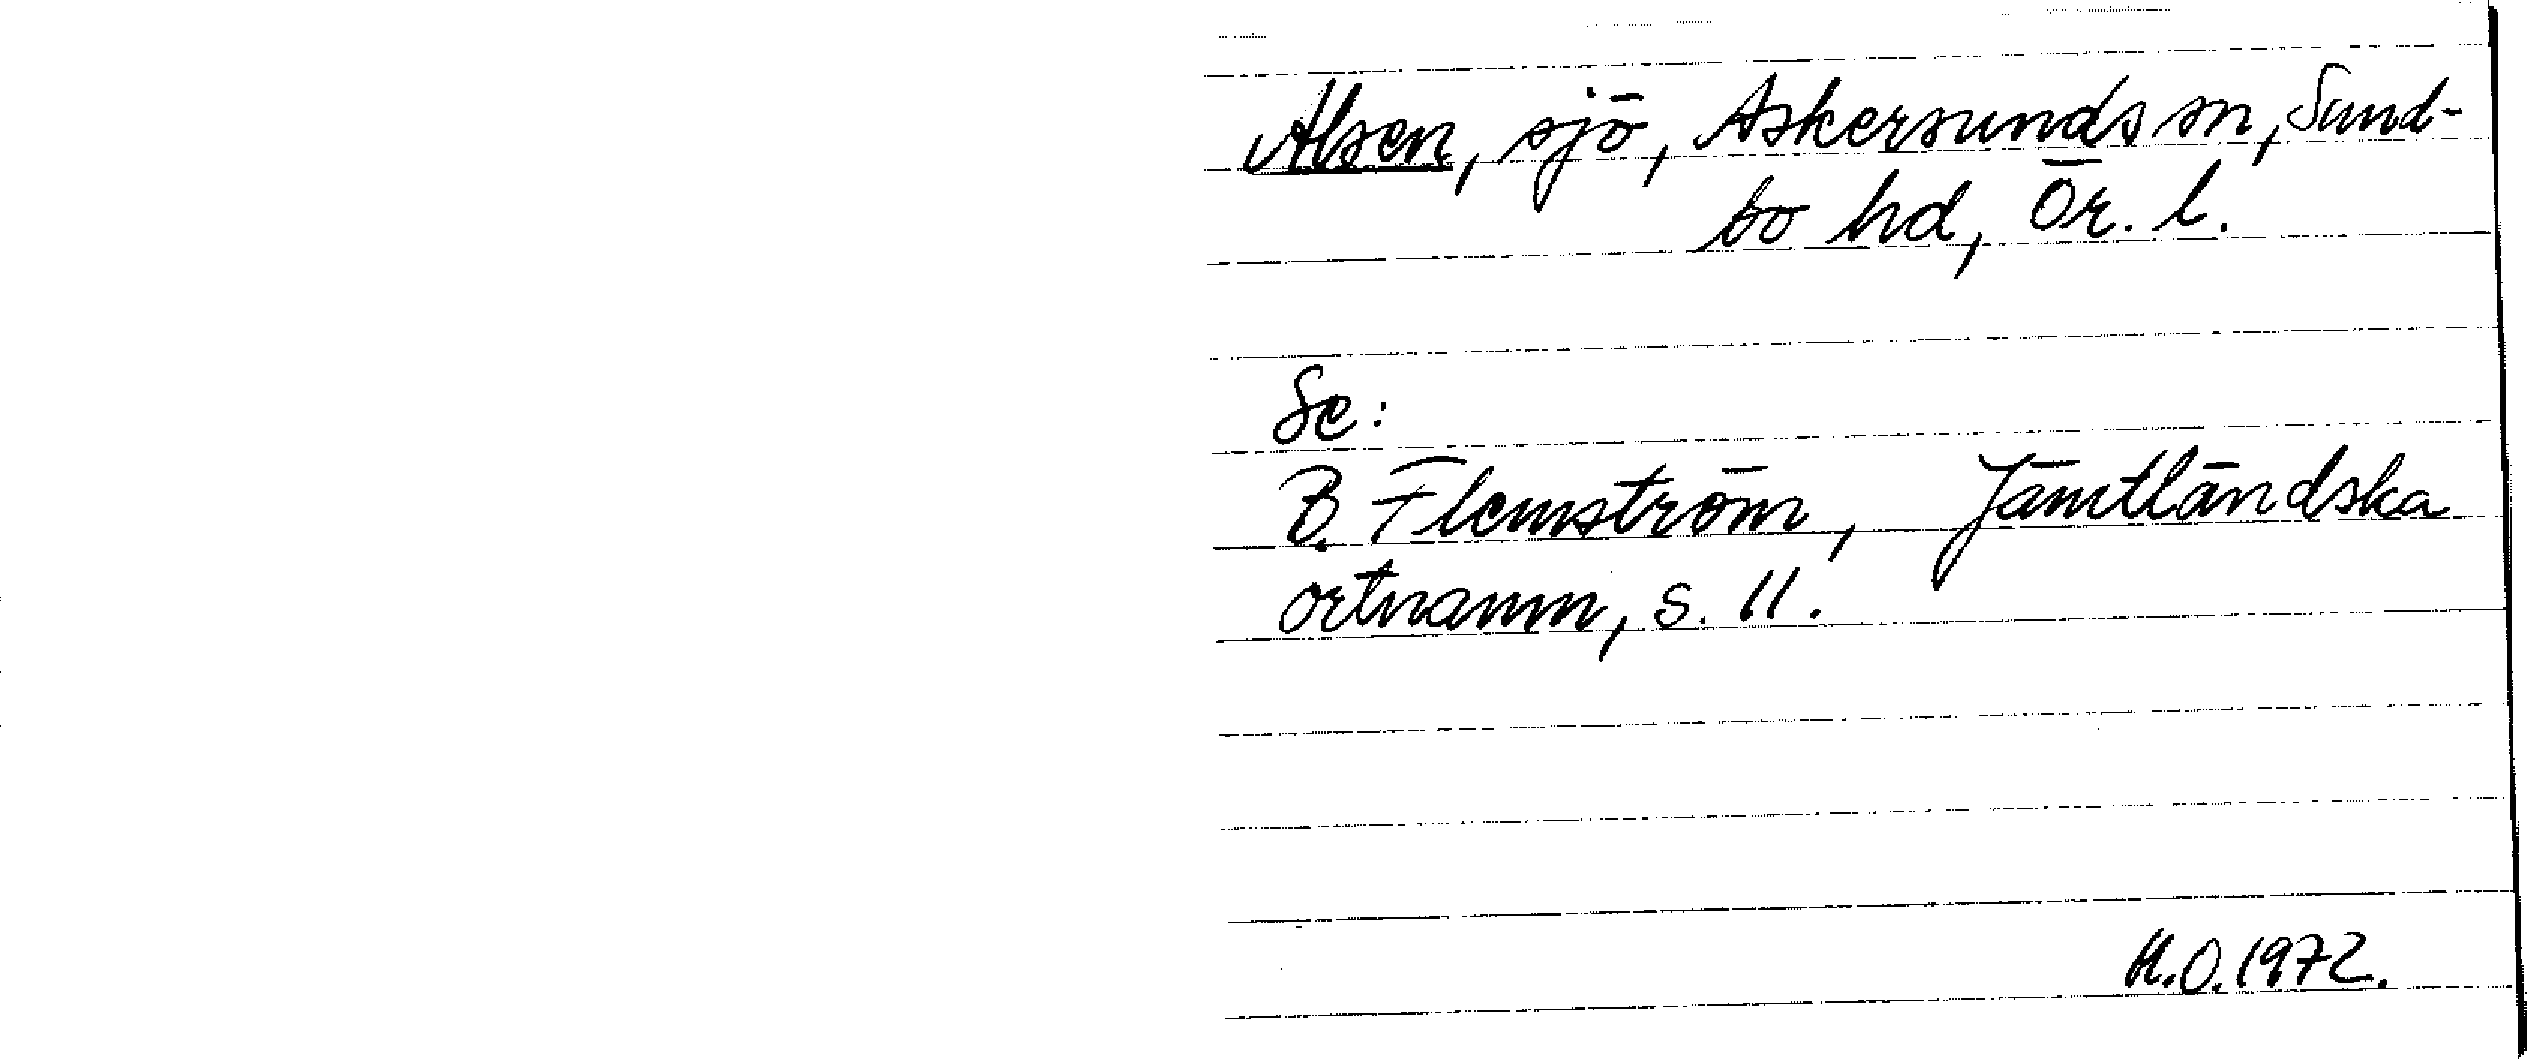 Alsen, sjö, Askersunds sn, Sund-
bo hd, Ör. l.
Se:
B. Flemström, Jämtländska
ortnamn, s. 11.
H.O. 1972.